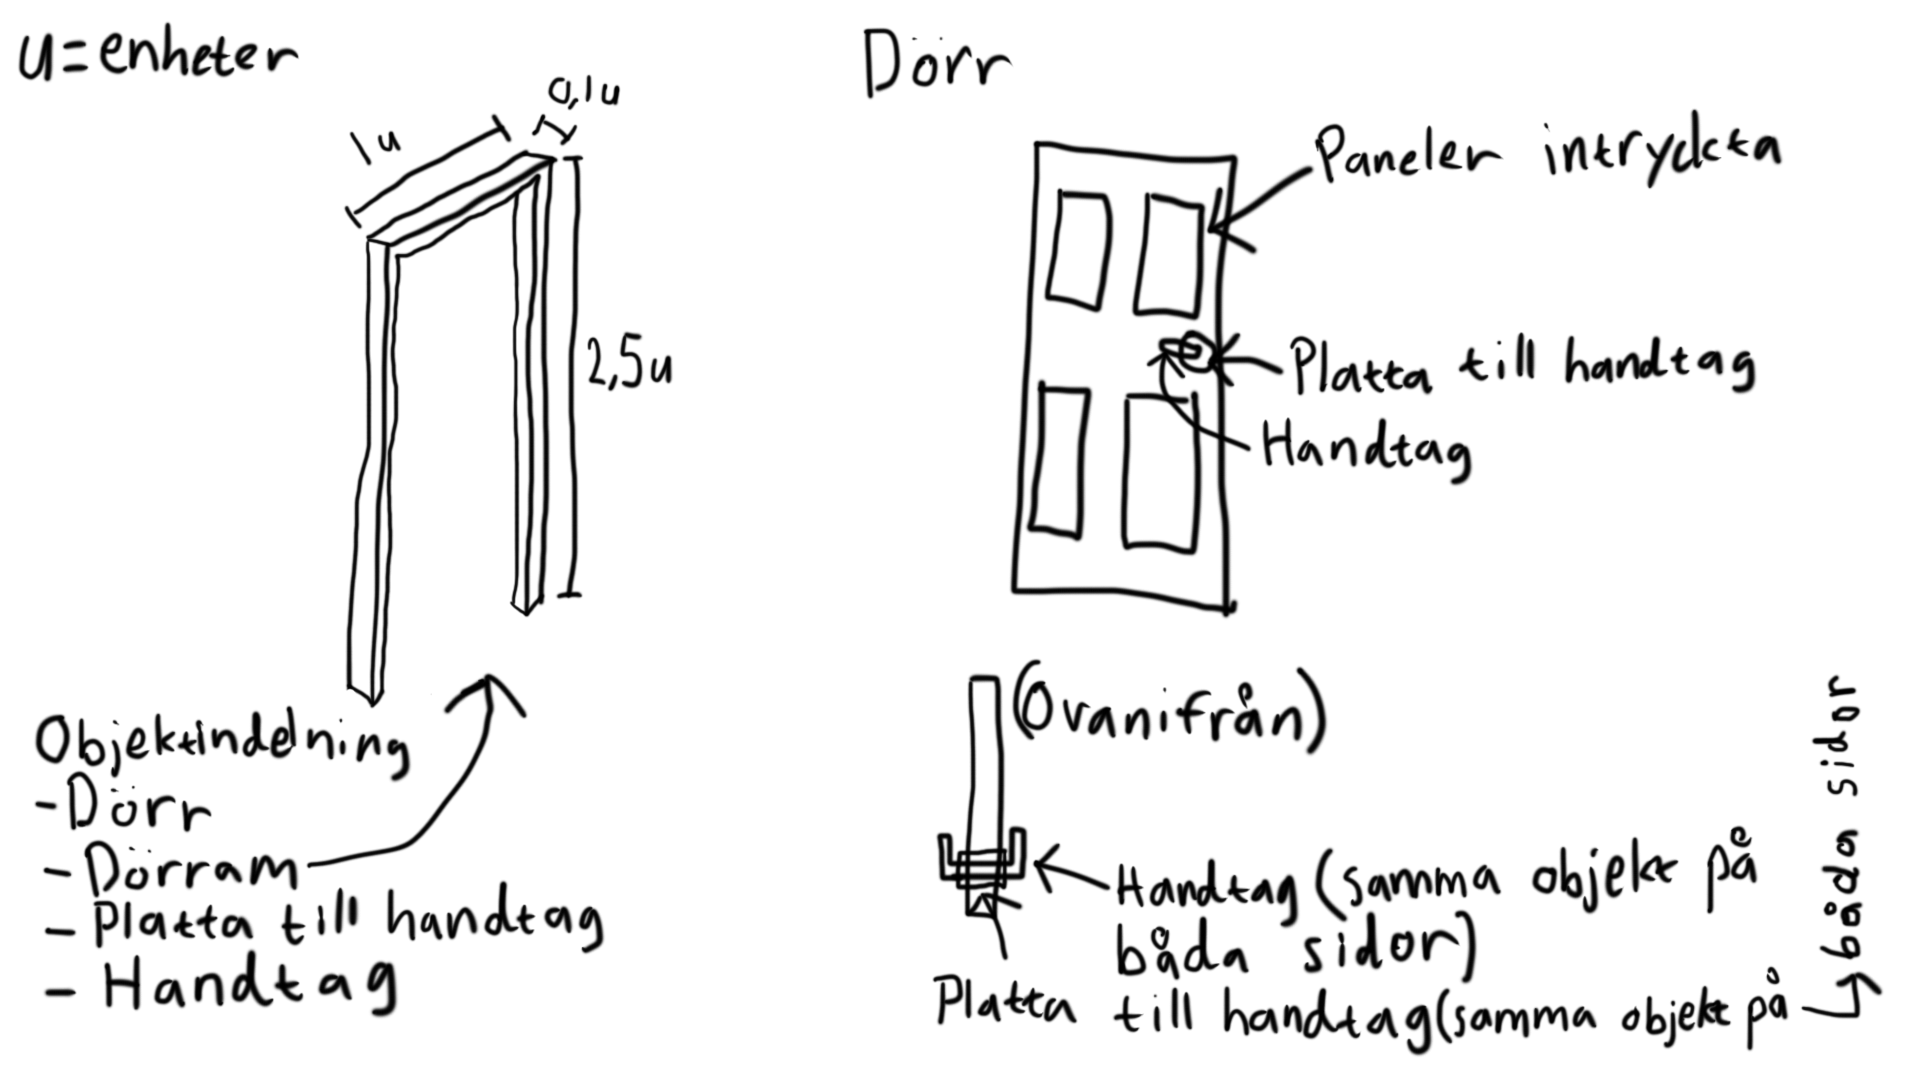 u=enheter
1u
0,1u
2,5u
Objektindelning
-Dörr
-Dörram
-Platta till handtag
-Handtag
Dörr
Paneler intryckta
Platta till handtag
Handtag
(Ovanifrån)
Handtag (samma objekt på
båda sidor)
Platta till handtag (samma objekt på
båda sidor